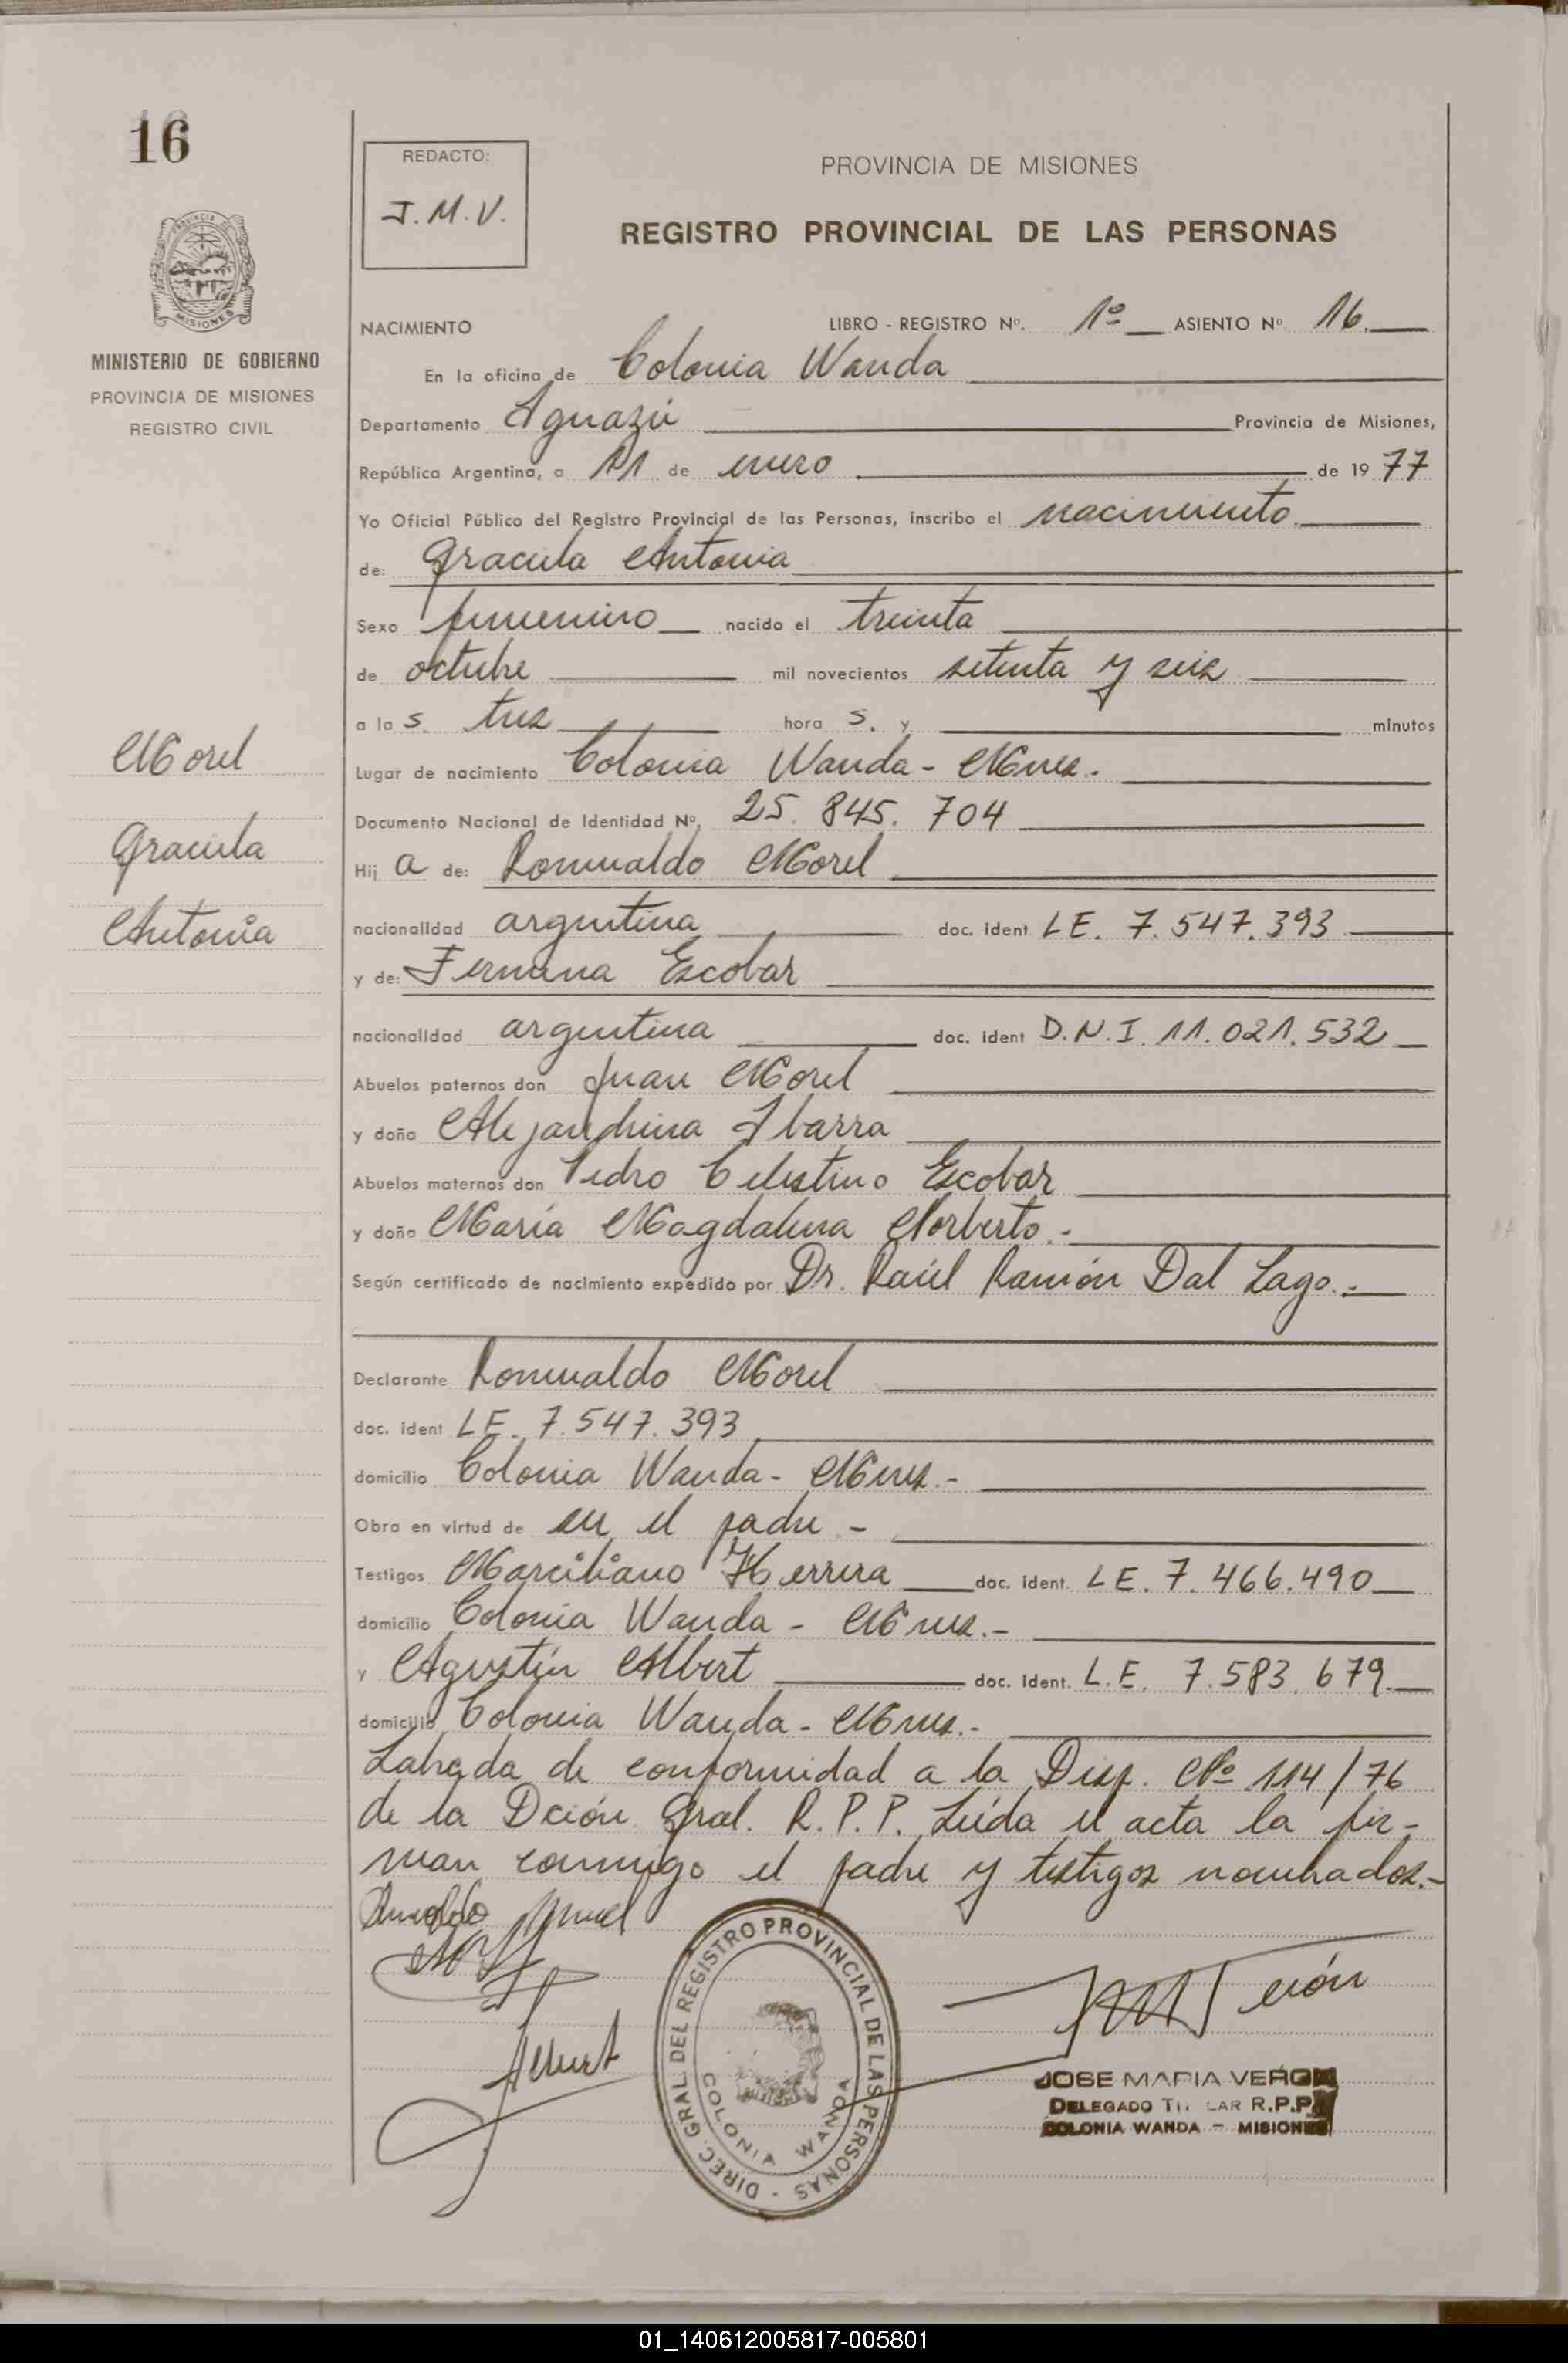 16
PROVINCIA DE
MISIONES
MINISTERIO DE GOBIERNO
PROVINCIA DE MISIONES
REGISTRO CIVIL
Morel
Graciela
Antonia
REDACTO:
J.M.V.
PROVINCIA DE MISIONES
REGISTRO PROVINCIAL DE LAS PERSONAS
NACIMIENTO LIBRO - REGISTRO Nº. 1º ASIENTO Nº 16.
En la oficina de Colonia Wanda
Departamento Iguazú Provincia de Misiones,
República Argentina, a 11 de enero de 1977
Yo Oficial Público del Registro Provincial de las Personas, inscribo el nacimiento
de: Graciela Antonia
Sexo femenino nacido el treinta
de octubre mil novecientos setenta y seis
a las tres horas. y minutos
Lugar de nacimiento Colonia Wanda - Mnes.
Documento Nacional de Identidad Nº. 25.845.704
Hija de: Romualdo Morel
nacionalidad argentina doc. ident LE. 7.547.393
y de: Fermina Escobar
nacionalidad argentina doc. ident D.N.I. 11.021.532
Abuelos paternos don Juan Morel
y doña Alejandrina Ibarra
Abuelos maternos don Pedro Celestino Escobar
y doña María Magdalena Norberto.-
Según certificado de nacimiento expedido por Dr. Raúl Ramón Dal Lago.-
Declarante Romualdo Morel
doc. ident LE. 7.547.393
domicilio Colonia Wanda - Mnes.-
Obra en virtud de ser el padre -
Testigos Marciliano Herrera doc. ident. LE. 7.466.490
domicilio Colonia Wanda - Mnes.-
y Agustín Albert doc. ident. L.E. 7.583.679.
domicilio Colonia Wanda - Mnes.-
Labrada de conformidad a la Disp. Nº 114/76
de la Dción. Gral. R.P.P. Leída el acta la fir-
man conmigo el padre y testigos nombrados.-
Albert
DIREC. GRAL DEL REGISTRO PROVINCIAL DE LAS PERSONAS -
COLONIA WANDA
JOSE MARIA VERON
DELEGADO TITULAR R.P.P.
COLONIA WANDA - MISIONES
01_140612005817-005801